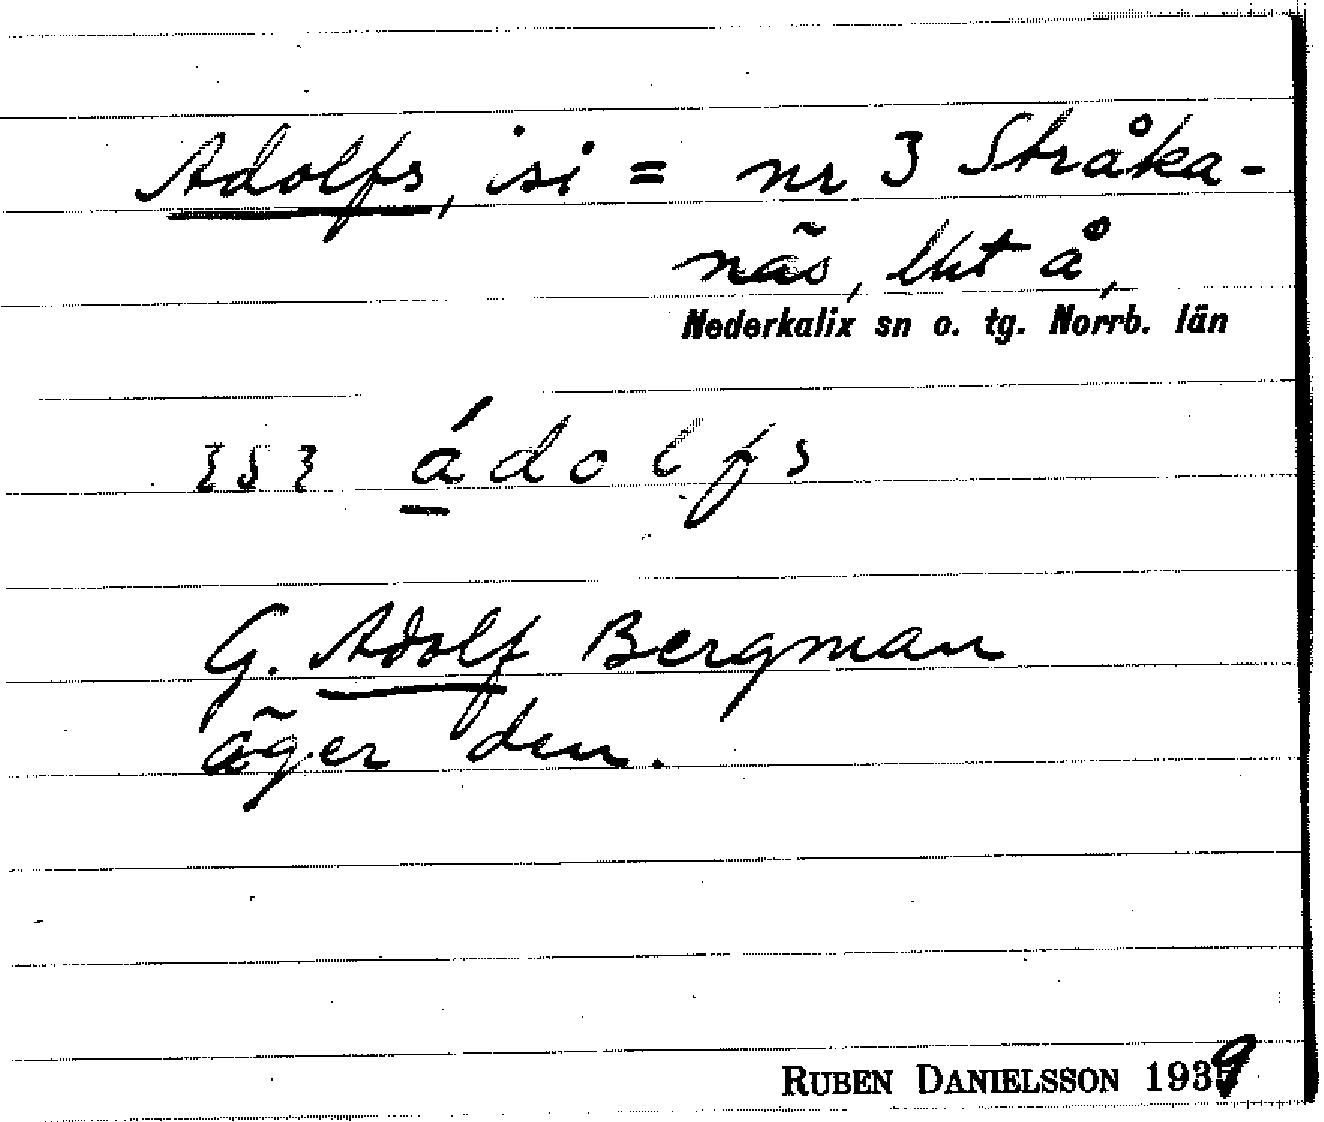 Adolfs, isi = nr 3 Stråka-
näs, lht å,
Nederkalix sn o. tg. Norrb. län
{S} ádolfs
G. Adolf Bergman
äger den.
RUBEN DANIELSSON 1939